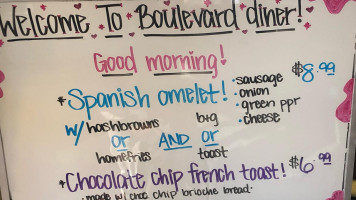 Welcome To Boulevard diner!
Good morning!
*Spanish omelet! $8.99
·sausage
·onion
·green ppr
·cheese
w/ hashbrowns or homefries
AND
b+g or toast
*Chocolate chip french toast! $6.99
·made w/ choc chip brioche bread·